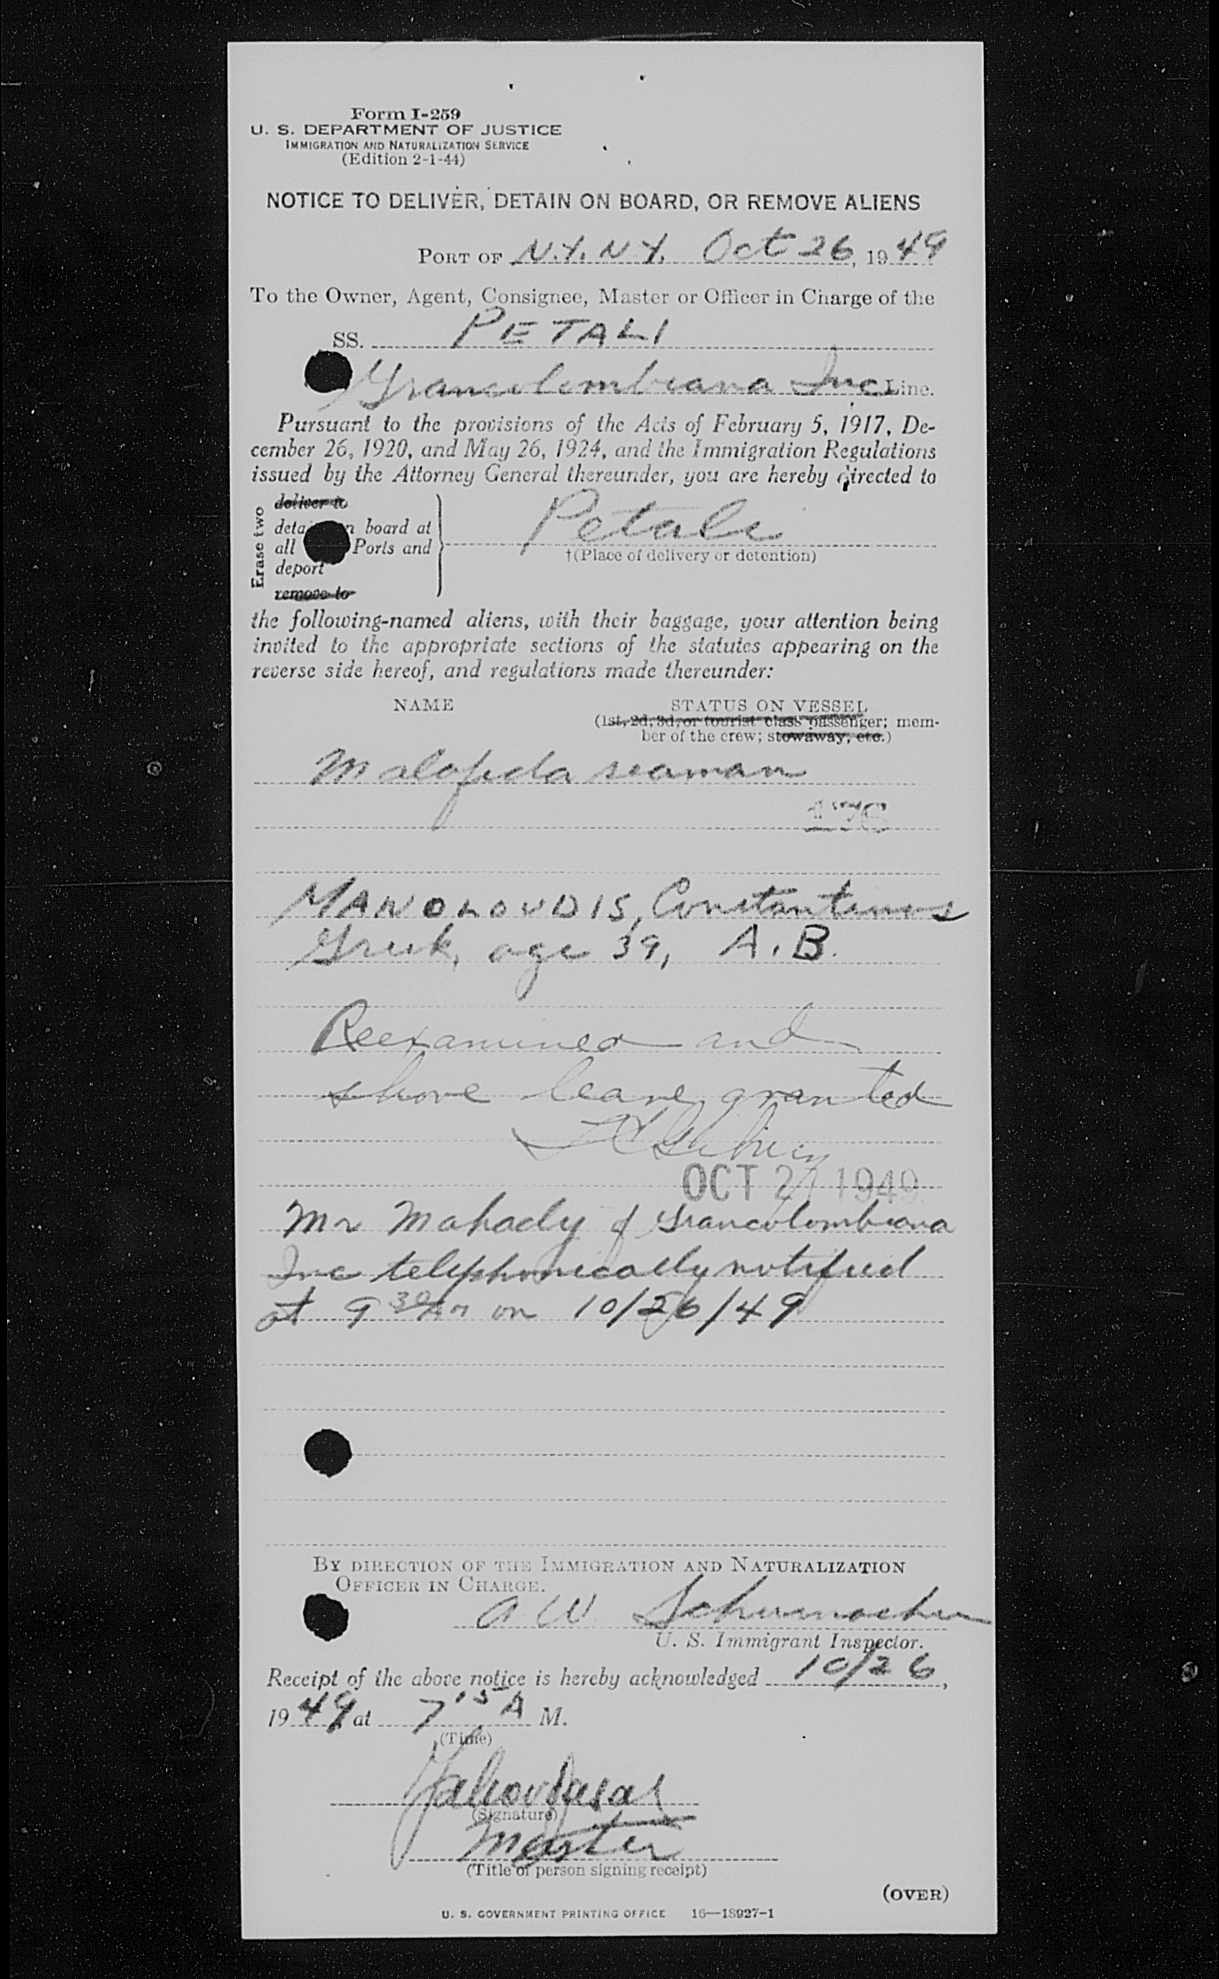 Form I-259
U. S. DEPARTMENT OF JUSTICE
IMMIGRATION AND NATURALIZATION SERVICE
(Edition 2-1-44)
NOTICE TO DELIVER, DETAIN ON BOARD, OR REMOVE ALIENS
PORT OF N.Y. N.Y. Oct 26, 1949
To the Owner, Agent, Consignee, Master or Officer in Charge of the
SS. PETALI
Grancolombiana Inc Line.
Pursuant to the provisions of the Acts of February 5, 1917, De-
cember 26, 1920, and May 26, 1924, and the Immigration Regulations
issued by the Attorney General thereunder, you are hereby directed to
Erase two
deliver to
deta n board at
all Ports and
deport
remove to
Petali
†(Place of delivery or detention)
the following-named aliens, with their baggage, your attention being
invited to the appropriate sections of the statutes appearing on the
reverse side hereof, and regulations made thereunder:
NAME STATUS ON VESSEL
(1st, 2d, 3d, or tourist class passenger; mem-
ber of the crew; stowaway, etc.)
Malafida seaman
MANOLOUDIS, Constantinos
Greek, age 39, A.B.
Reexamined and
shore leave granted
OCT 27 1949
Mr Mahady of Grancolombiana
Inc telephonically notified
at 9 30 AM on 10/26/49
BY DIRECTION OF THE IMMIGRATION AND NATURALIZATION
OFFICER IN CHARGE.
A W Schumacher
U. S. Immigrant Inspector.
Receipt of the above notice is hereby acknowledged 10/26,
1949 at 7 15 A M.
(Time)
(Signature)
Master
(Title of person signing receipt)
(OVER)
U. S. GOVERNMENT PRINTING OFFICE 16—18927-1